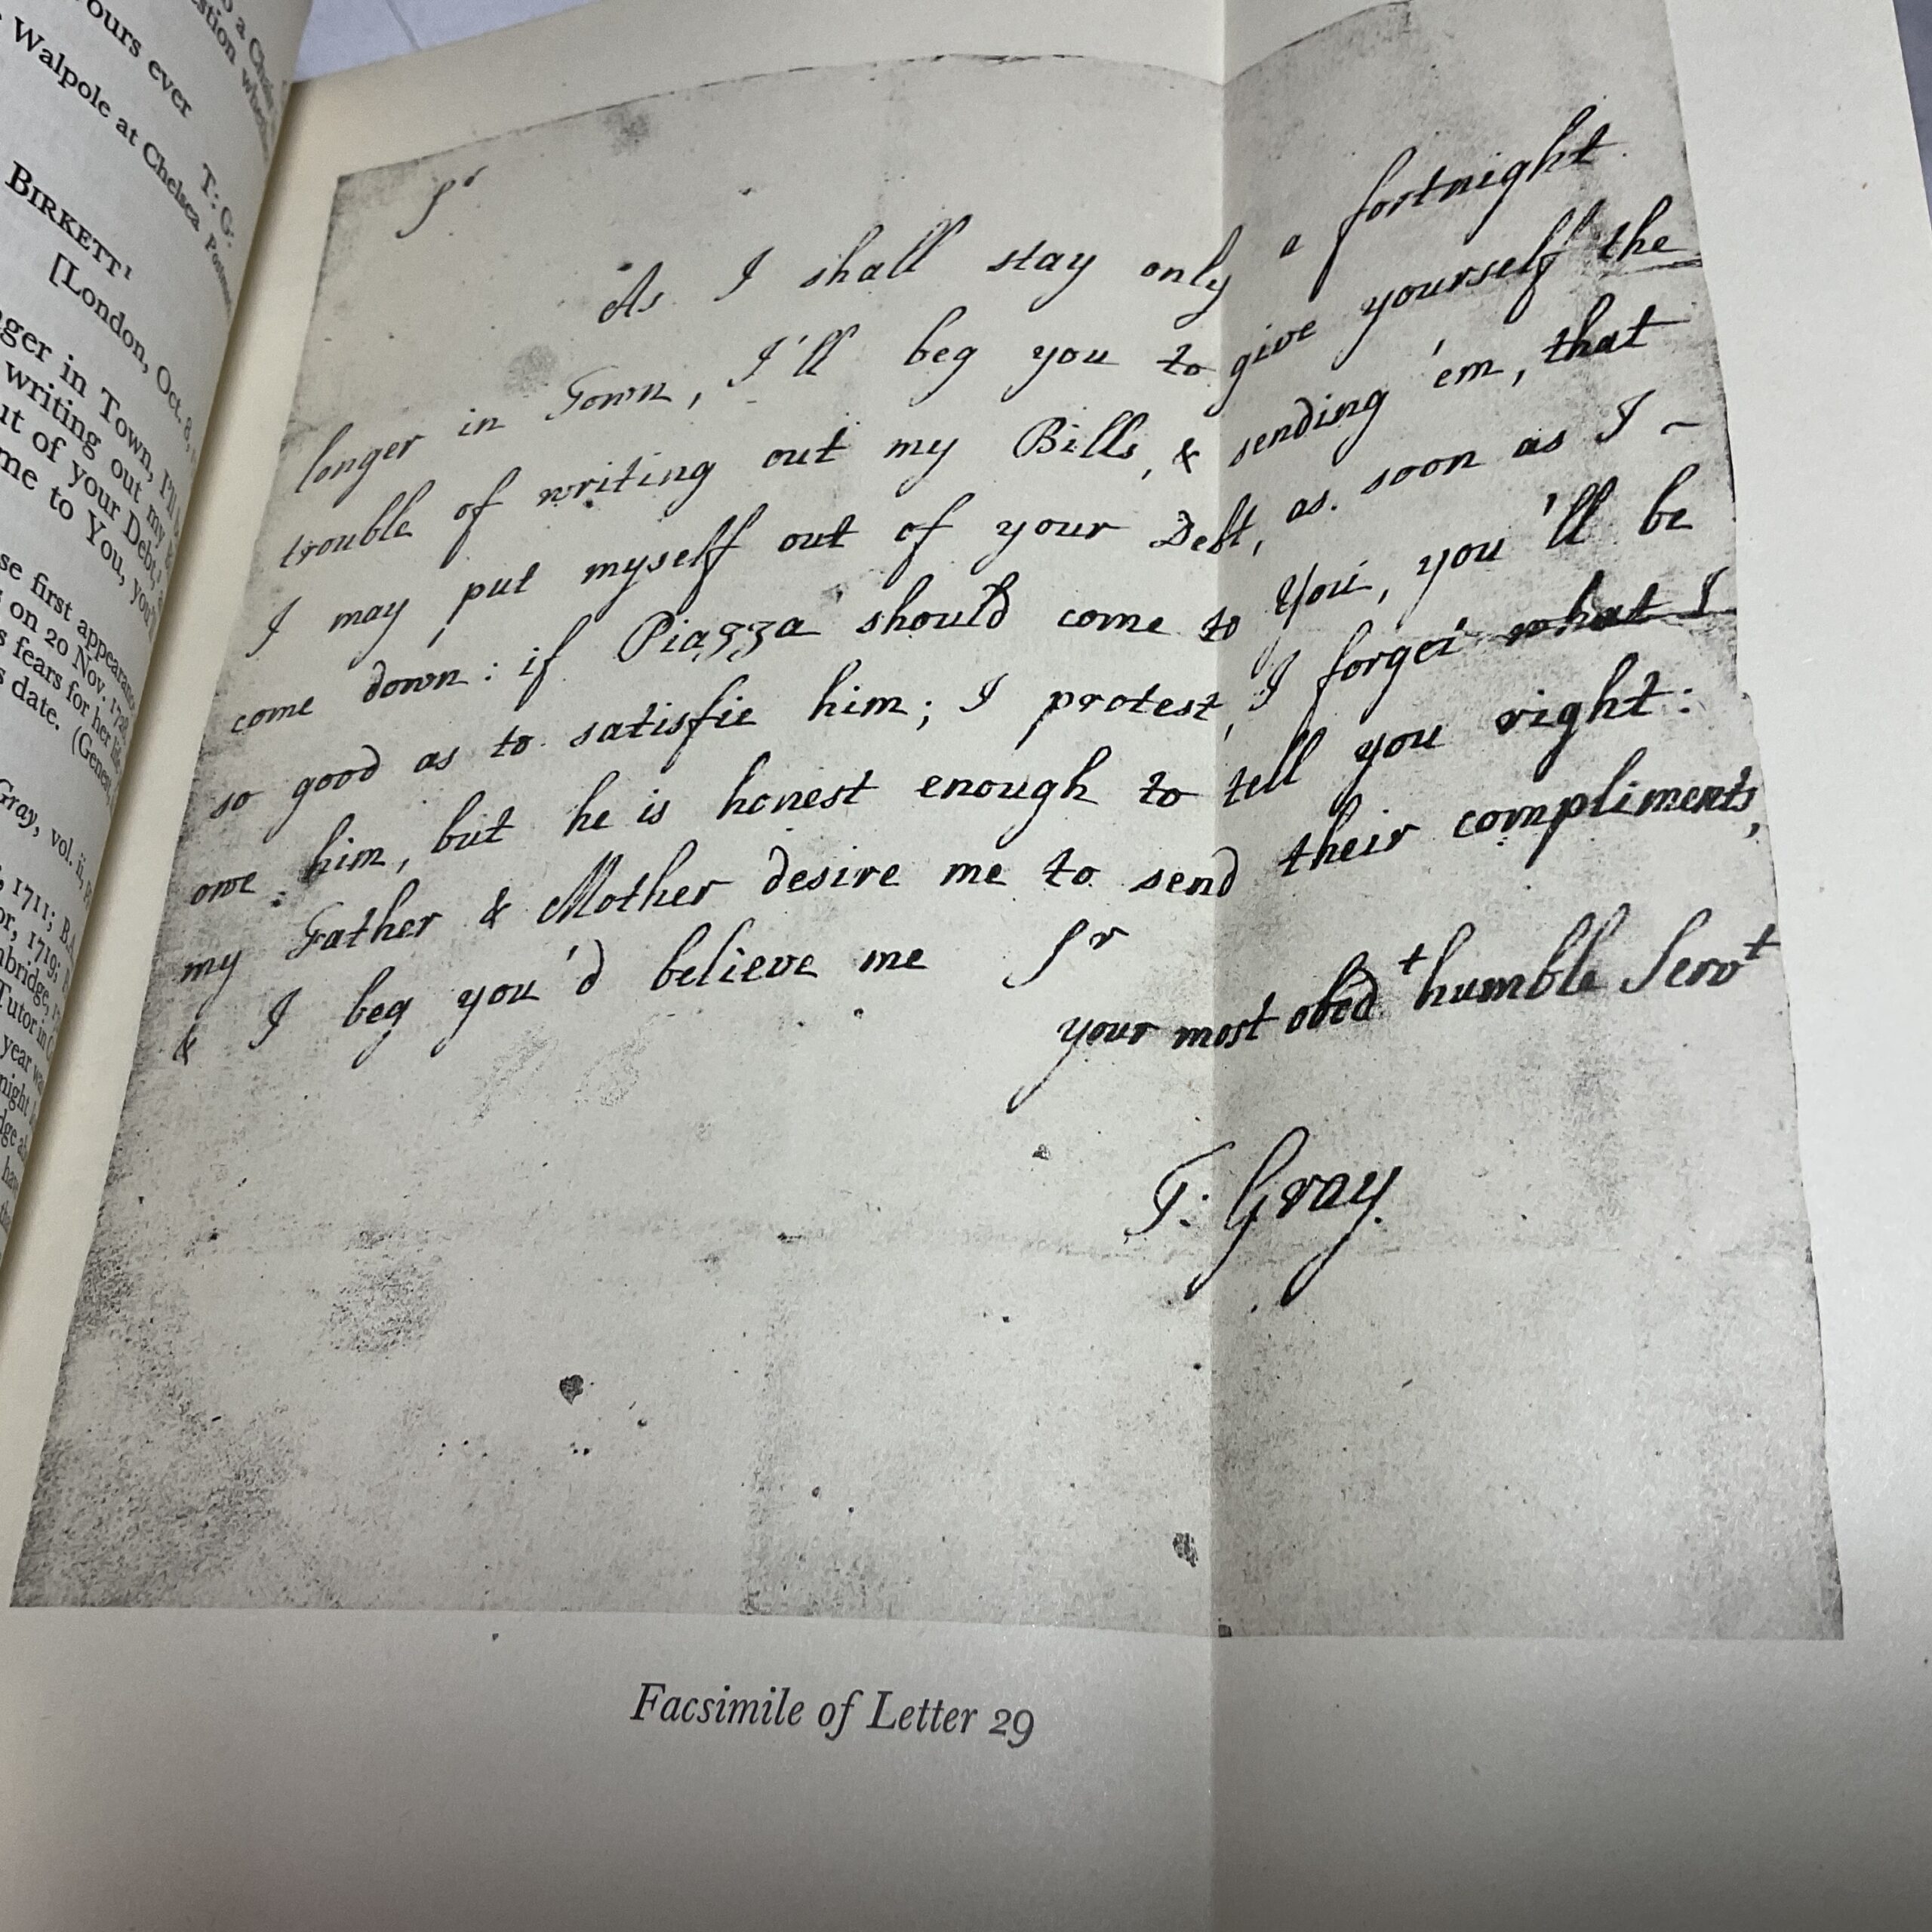 o a Chels
stion whe
ours ever
T: G:
Walpole at Chelsea
BIRKETT¹
[London, Oct. 8,
ger in Town, I'll
writing out my
ut of your Debt,
me to You, you'll
se first appearan
on 20 Nov. 17
s fears for her life
s date. (Gene
Gray, vol. ii, p
, 1711; B.A.
or, 1719;
mbridge,
Tutor in C
year wa
night
dge a
hav
Sʳ
As I shall stay only a fortnight
longer in Town, I'll beg you to give yourself the
trouble of writing out my Bills, & sending 'em, that
I may put myself out of your Debt, as soon as I ~
come down: if Piazza should come to You, you'll be
so good as to satisfie him; I protest, I forget what I
owe him, but he is honest enough to tell you right:
my Father & Mother desire me to send their compliments,
& I beg you'd believe me Sʳ
your most obedᵗ humble Servᵗ
T: Gray.
Facsimile of Letter 29